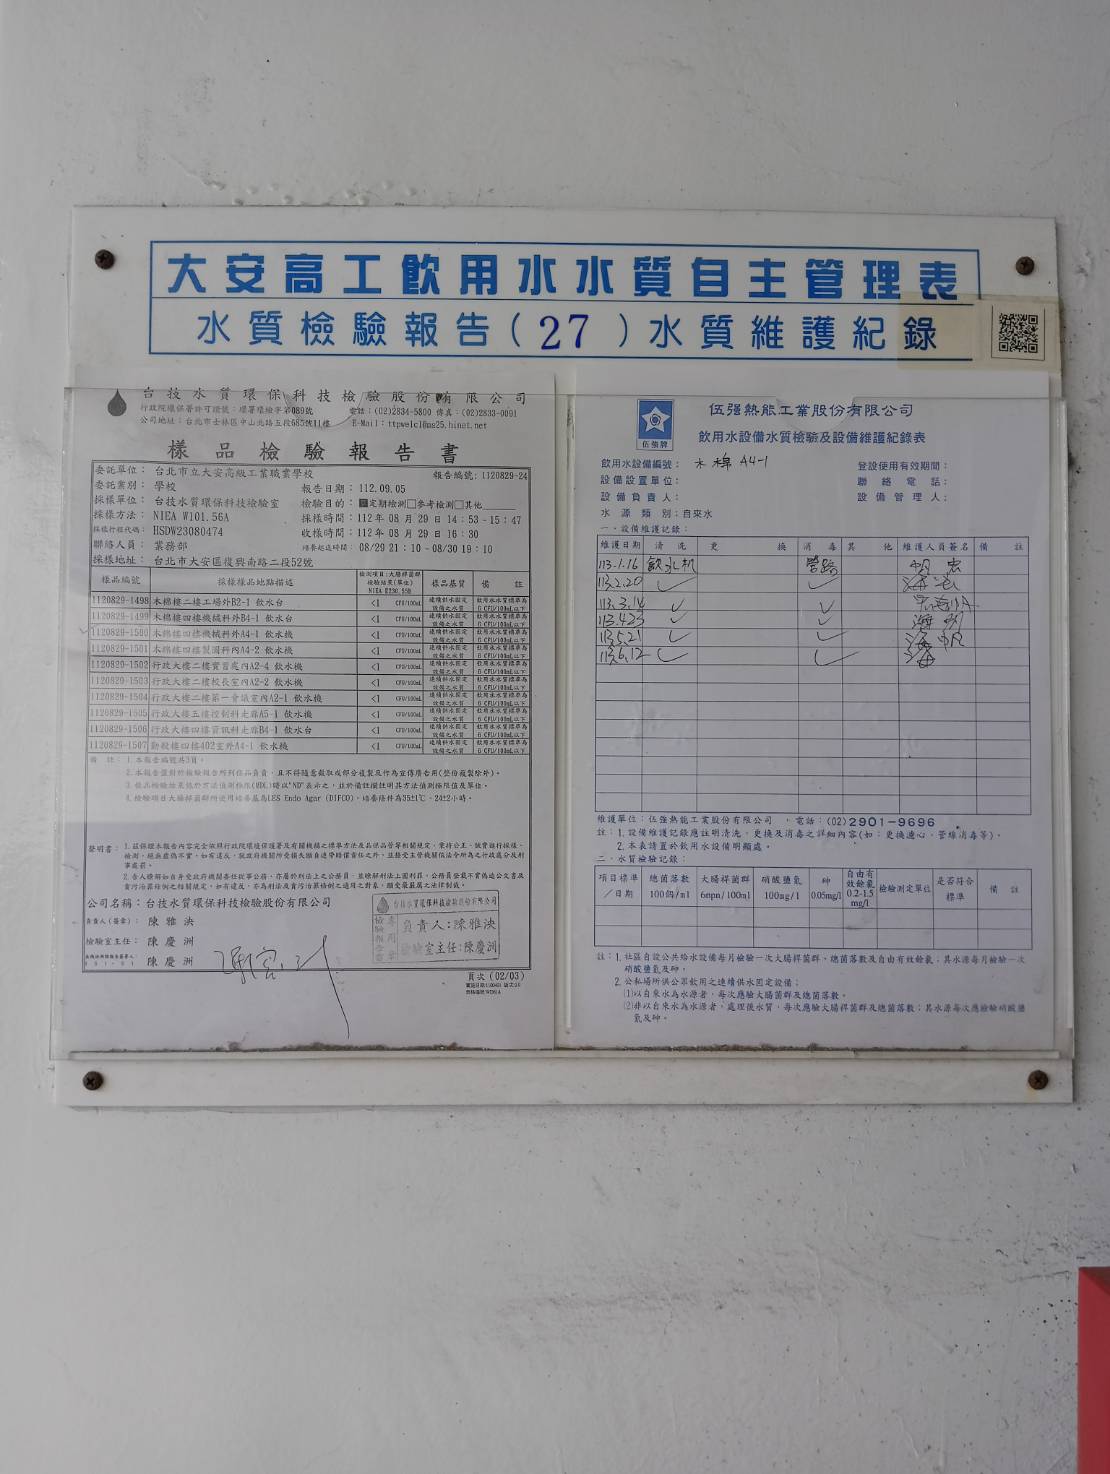 大安高工飲用水水質自主管理表
水質檢驗報告(27)水質維護紀錄
台技水質環保科技檢驗股份有限公司
行政院環保署許可證號：環署環檢字第089號 電話：(02)2834-5800 傳真：(02)2833-0091
公司地址：台北市士林區中山北路五段685號11樓 E-Mail：ttpwelcl@ms25.hinet.net
樣品檢驗報告書
委託單位：台北市立大安高級工業職業學校 報告編號：1120829-24
委託業別：學校 報告日期：112.09.05
採樣單位：台技水質環保科技檢驗室 檢驗目的：■定期檢測□參考檢測□其他
採樣方法：NIEA W101.56A 採樣時間：112年08月29日14：53-15：47
採樣行程代碼：HSDW23080474 收樣時間：112年08月29日16：30
聯絡人員：業務部 培養起迄時間：08/29 21：10-08/30 19：10
採樣地址：台北市大安區復興南路二段52號
樣品編號 採樣樣品地點描述 檢測項目：大腸桿菌群 檢驗結果(單位) NIEA E230.55B 樣品基質 備註
1120829-1498 木棉樓二樓工場外B2-1 飲水台 <1 CFU/100mL 連續供水固定設備之水質 飲用水水質標準為6 CFU/100mL以下
1120829-1499 木棉樓四樓機械科外B4-1 飲水台 <1 CFU/100mL 連續供水固定設備之水質 飲用水水質標準為6 CFU/100mL以下
1120829-1500 木棉樓四樓機械科外A4-1 飲水機 <1 CFU/100mL 連續供水固定設備之水質 飲用水水質標準為6 CFU/100mL以下
1120829-1501 木棉樓四樓製圖科內A4-2 飲水機 <1 CFU/100mL 連續供水固定設備之水質 飲用水水質標準為6 CFU/100mL以下
1120829-1502 行政大樓二樓實習處內A2-4 飲水機 <1 CFU/100mL 連續供水固定設備之水質 飲用水水質標準為6 CFU/100mL以下
1120829-1503 行政大樓二樓校長室內A2-2 飲水機 <1 CFU/100mL 連續供水固定設備之水質 飲用水水質標準為6 CFU/100mL以下
1120829-1504 行政大樓二樓第一會議室內A2-1 飲水機 <1 CFU/100mL 連續供水固定設備之水質 飲用水水質標準為6 CFU/100mL以下
1120829-1505 行政大樓五樓控制科走廊A5-1 飲水機 <1 CFU/100mL 連續供水固定設備之水質 飲用水水質標準為6 CFU/100mL以下
1120829-1506 行政大樓四樓資訊科走廊B4-1 飲水台 <1 CFU/100mL 連續供水固定設備之水質 飲用水水質標準為6 CFU/100mL以下
1120829-1507 勤毅樓四樓402室外A4-1 飲水機 <1 CFU/100mL 連續供水固定設備之水質 飲用水水質標準為6 CFU/100mL以下
備註：1.本報告編號共3頁。
2.本報告僅對於檢驗報告所列樣品負責，且不得隨意截取或部分複製及作為宣傳廣告用(整份複製除外)。
3.樣品檢驗結果低於方法偵測極限(MDL)時以"ND"表示之，並於備註欄註明其方法偵測極限值及單位。
4.檢驗項目大腸桿菌群所使用培養基為LES Endo Agar (DIFCO)，培養條件為35±1℃、24±2小時。
聲明書：1.茲保證本報告內容完全依照行政院環境保護署及有關機關之標準方法及品保品管等相關規定，秉持公正、誠實進行採樣、
檢測，絕無虛偽不實，如有違反，就政府機關所受損失願負連帶賠償責任之外，並接受主管機關依法令所為之行政處分及刑
事處罰。
2.吾人瞭解如自身受政府機關委任從事公務，亦屬於刑法上之公務員，並瞭解刑法上圖利罪、公務員登載不實偽造公文書及
貪污治罪條例之相關規定，如有違反，亦為刑法及貪污治罪條例之適用之對象，願受最嚴厲之法律制裁。
公司名稱：台技水質環保科技檢驗股份有限公司
負責人(簽章)：陳雅泱
檢驗室主任：陳慶洲
陳慶洲
台技水質環保科技檢驗股份有限公司
檢驗報告專用章
負責人：陳雅泱
檢驗室主任：陳慶洲
頁次(02/03)
伍強牌
伍强熱能工業股份有限公司
飲用水設備水質檢驗及設備維護紀錄表
飲用水設備編號：木棉 A4-1 登設使用有效期間：
設備設置單位： 聯絡電話：
設備負責人： 設備管理人：
水源類別：自來水
一．設備維護記錄：
維護日期 清洗 更換 消毒 其他 維護人員簽名 備註
113.1.16 飲水机 管路
113.2.20 ✓ ✓
113.3.14 ✓ ✓
113.4.23 ✓ ✓
113.5.21 ✓ ✓
113.6.12 ✓ ✓
維護單位：伍强熱能工業股份有限公司 ，電話：(02)2901-9696
註：1.設備維護記錄應註明清洗、更換及消毒之詳細內容(如：更換濾心、管線消毒等)。
2.本表請置於飲用水設備明顯處。
二．水質檢驗記錄：
項目標準/日期 總菌落數100個/ml 大腸桿菌群6mpn/100ml 硝酸鹽氮100mg/l 砷0.05mg/l 自由有效餘氯0.2-1.5mg/l 檢驗測定單位 是否符合標準 備註
註：1.社區自設公共給水設備每月檢驗一次大腸桿菌群、總菌落數及自由有效餘氯；其水源每月檢驗一次
硝酸鹽氮及砷。
2.公私場所供公眾飲用之連續供水固定設備；
(1)以自來水為水源者，每次應驗大腸菌群及總菌落數。
(2)非以自來水為水源者，處理後水質，每次應驗大腸桿菌群及總菌落數；其水源每次應檢驗硝酸鹽
氮及砷。